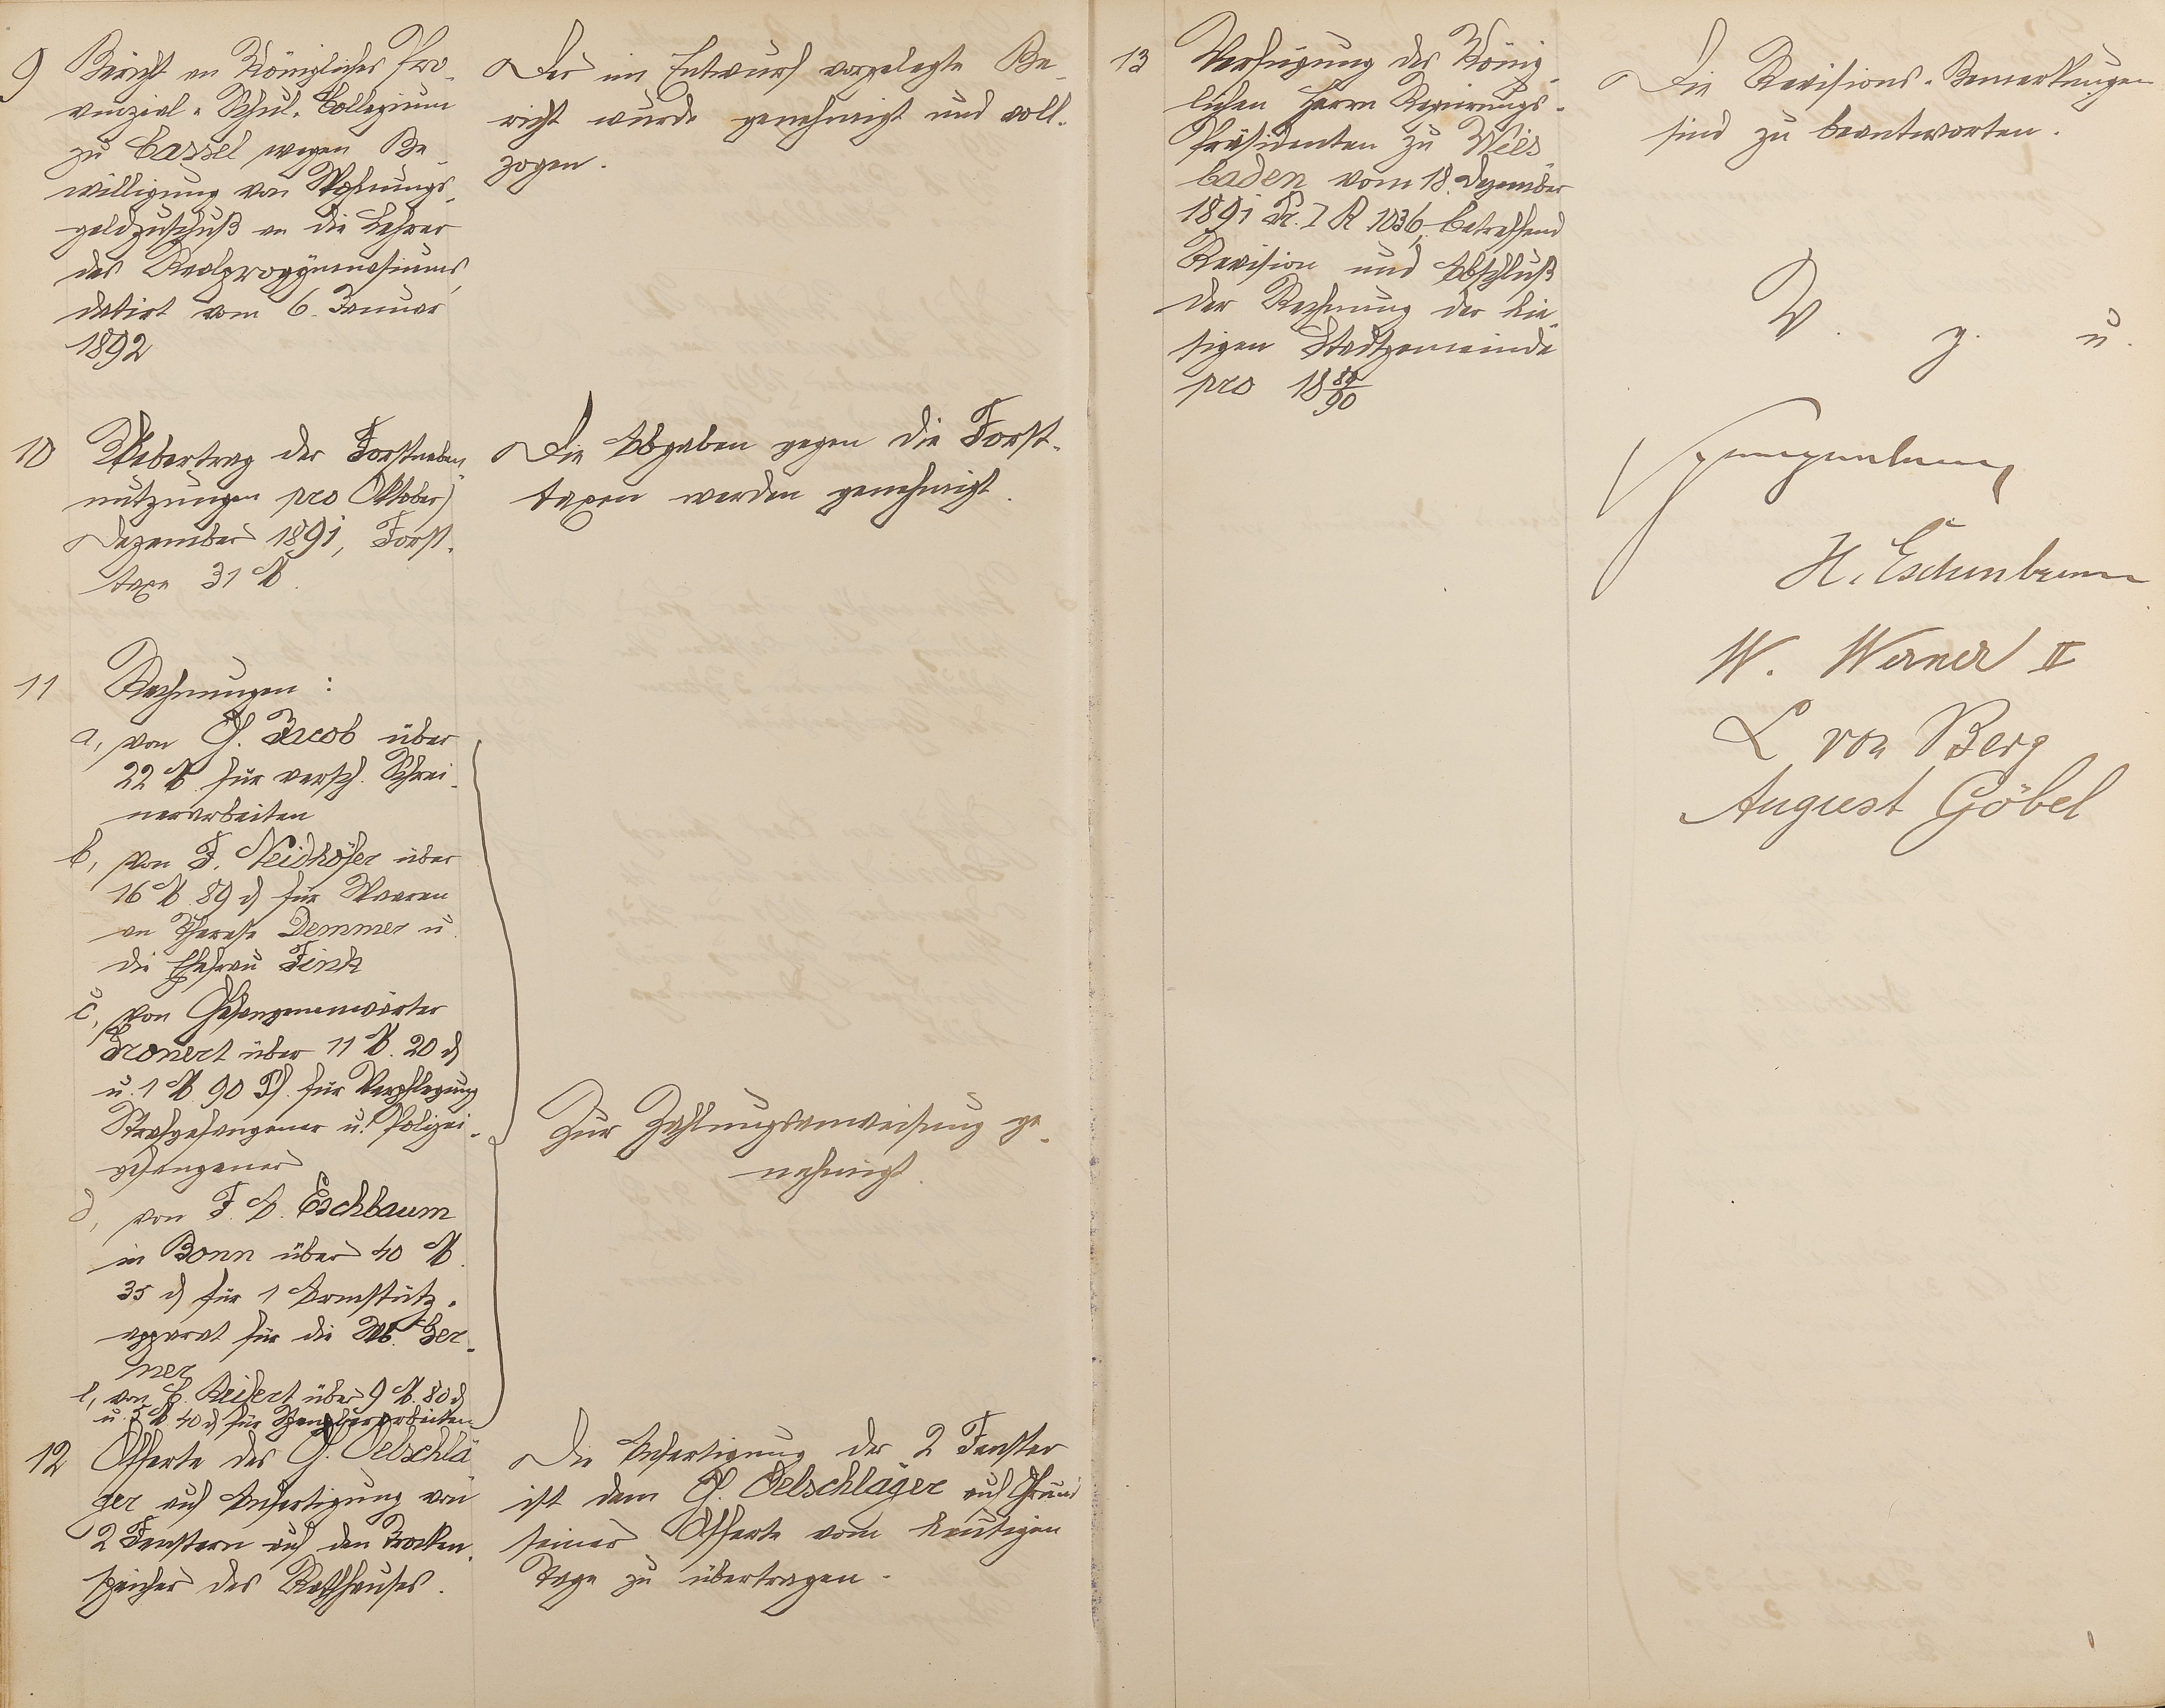 9
Bericht an Königliches Pro-
vinzial-Schul-Collegium
zu Cassel wegen Be-
willigung von Wohnungs-
geldzuschuß an die Lehrer
des Realprogymnasiums,
datirt vom 6. Januar
1892
Der im Entwurf vorgelegte Be-
richt wurde genehmigt und voll-
zogen.
10
Uebertrag der Forstneben-
nutzungen pro Oktober/
Dezember 1891, Forst-
taxe 31 M.
Die Abgaben gegen die Forst-
taxen werden genehmigt.
11
Rechnungen:
a, von G. Jacob über
22 M. für versch. Schrei-
nerarbeiten
b, von F. Neidhöfer über
16 M. 89 d für Waaren
an Therese Demmer u.
die Ehefrau Fink
c, von Gefangenenwärter
Fronert über 11 M. 20 d
u. 1 M. 90 Pf. für Verpflegung
Strafgefangener u. Polizei-
gefangener
d, von F. A. Eschbaum
in Bonn über 40 M.
35 d für 1 Armstütz-
apparat für die W. Ger-
ner
e, von C. Reifert über 9 M. 80 d
u. 5 M 40 d für Spenglerarbeiten
Zur Zahlungsanweisung ge-
nehmigt.
12
Offerte des G. Oelschlä-
ger auf Anfertigung von
2 Fenstern auf den Trocken-
speicher des Rathhauses.
Die Anfertigung der 2 Fenster
ist dem G. Oelschläger auf Grund
seiner Offerte vom heutigen
Tage zu übertragen.
13
Verfügung des König-
lichen Herrn Regierungs-
Präsidenten zu Wies-
baden vom 18. Dezember
1891 Pr. I R 1036, betreffend
Revision und Abschluß
der Rechnung der hie-
sigen Stadtgemeinde
pro 18 89/90
Die Revisions-Bemerkungen
sind zu beantworten.
V. g. u.
H. Eschenbrenner
W. Werner II
L von Berg
August Göbel